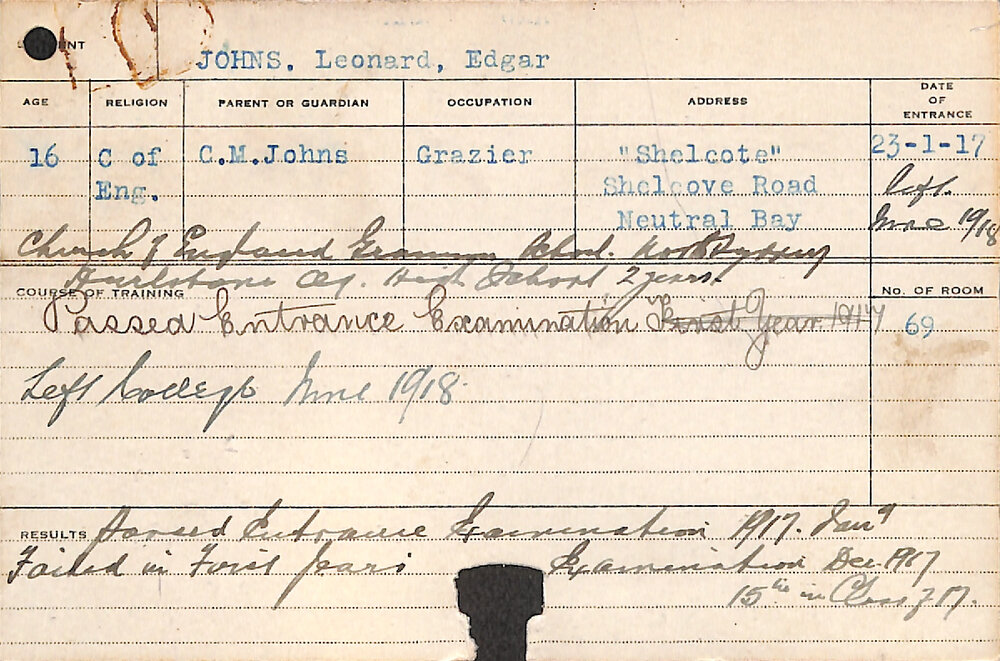 JOHNS. Leonard, Edgar
AGE RELIGION PARENT OR GUARDIAN OCCUPATION ADDRESS DATE OF ENTRANCE
16 C of Eng. C.M.Johns Grazier "Shelcote" Shelcove Road Neutral Bay 23-1-17
left June 1918
Church of England Grammar School. North Sydney
Hurlstone Ag. High School 2 years.
COURSE OF TRAINING No. OF ROOM
Passed Entrance Examination First Year 1917 69
Left College June 1918.
RESULTS Passed Entrance Examination 1917. Jany
Failed in First Years Examination Dec. 1917
15th in Class of 17.